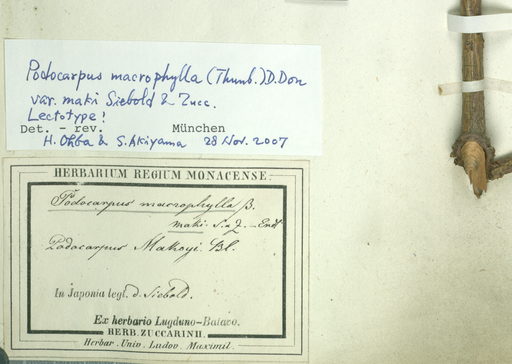 Podocarpus macrophylla (Thunb.) D. Don
var. maki Siebold & Zucc.
Lectotype!
Det. - rev. München
H. Ohba & S. Akiyama 28 Nov. 2007
HERBARIUM REGIUM MONACENSE.
Podocarpus macrophylla β.
maki. S. & Z. - Endl
Podocarpus Makoyi. Bl.
In Japonia legt. d. Siebold.
Ex herbario Lugduno-Batavo.
HERB. ZUCCARINII.
Herbar. Univ. Ludov. Maximil.